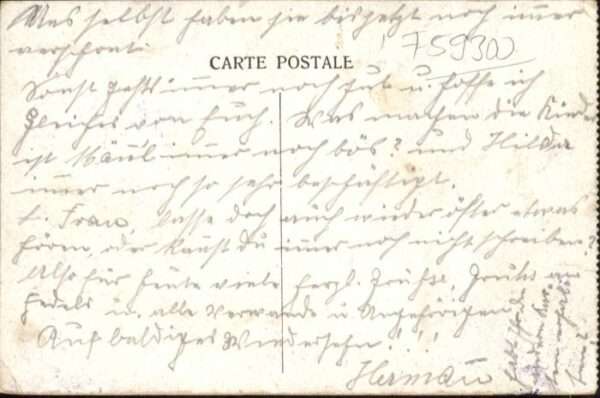 Uns selbst haben sie bis jetzt noch immer
verschont.
759300
CARTE POSTALE
Sonst gehts immer noch gut u. hoffe ich
gleiches von Euch. Was machen die Kinder
ist immer noch bös? und Hilda
immer noch so sehr beschäftigt.
L. Frau, lasse doch auch wieder öfter etwas
hören, oder kannst du immer noch nicht schreiben?
Also für heute viele herzl. Grüße, Grüße an
u. alle Verwande u Angehörigen
Auf baldiges Wiedersehn!!!
Hermann
habt Ihr die